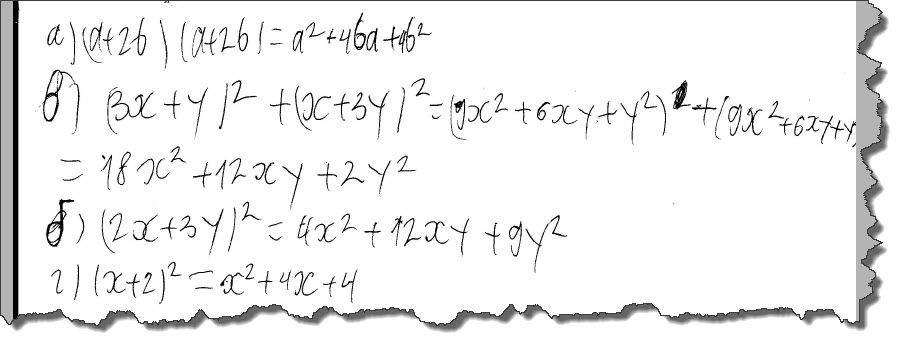 а) (a+2b) (a+2b) = a²+4ba+4b²
в) (3x+y)² + (x+3y)² = (9x²+6xy+y²) + (9x²+6xy+y
= 18x²+12xy+2y²
б) (2x+3y)² = 4x²+12xy+9y²
г) (x+2)² = x²+4x+4